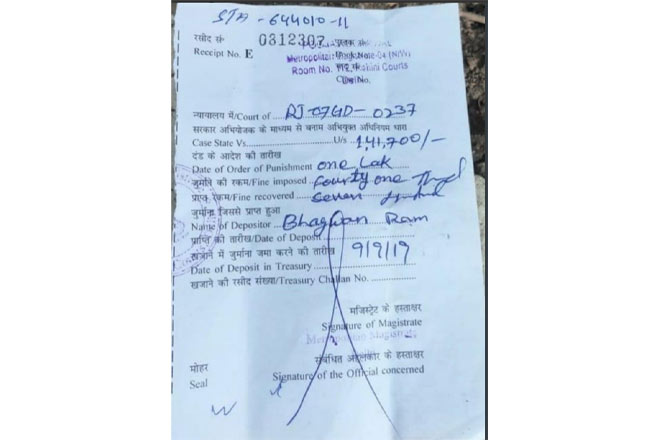 STA - 644010-11
रसीद सं॰ 0312307
Receipt No. E Metropolitan Magistrate-04 (N/W)
Room No. 112, Rohini Courts
Delhi
न्यायालय में/Court of RJ-07GD-0237
सरकार अभियोजक के माध्यम से बनाम अभियुक्त अधिनियम धारा
Case State Vs. U/s 1,41,700/-
दंड के आदेश की तारीख
Date of Order of Punishment one Lak
जुर्माने की रकम/Fine imposed fourty one
प्राप्त रकम/Fine recovered seven
जुर्माना जिससे प्राप्त हुआ
Name of Depositor Bhagwan Ram
प्राप्ति की तारीख/Date of Deposit
खजाने में जुर्माना जमा करने की तारीख 9/9/19
Date of Deposit in Treasury
खजाने की रसीद संख्या/Treasury Challan No.
मजिस्ट्रेट के हस्ताक्षर
Signature of Magistrate
Metropolitan Magistrate
संबंधित अहलकार के हस्ताक्षर
मोहर
Seal Signature of the Official concerned